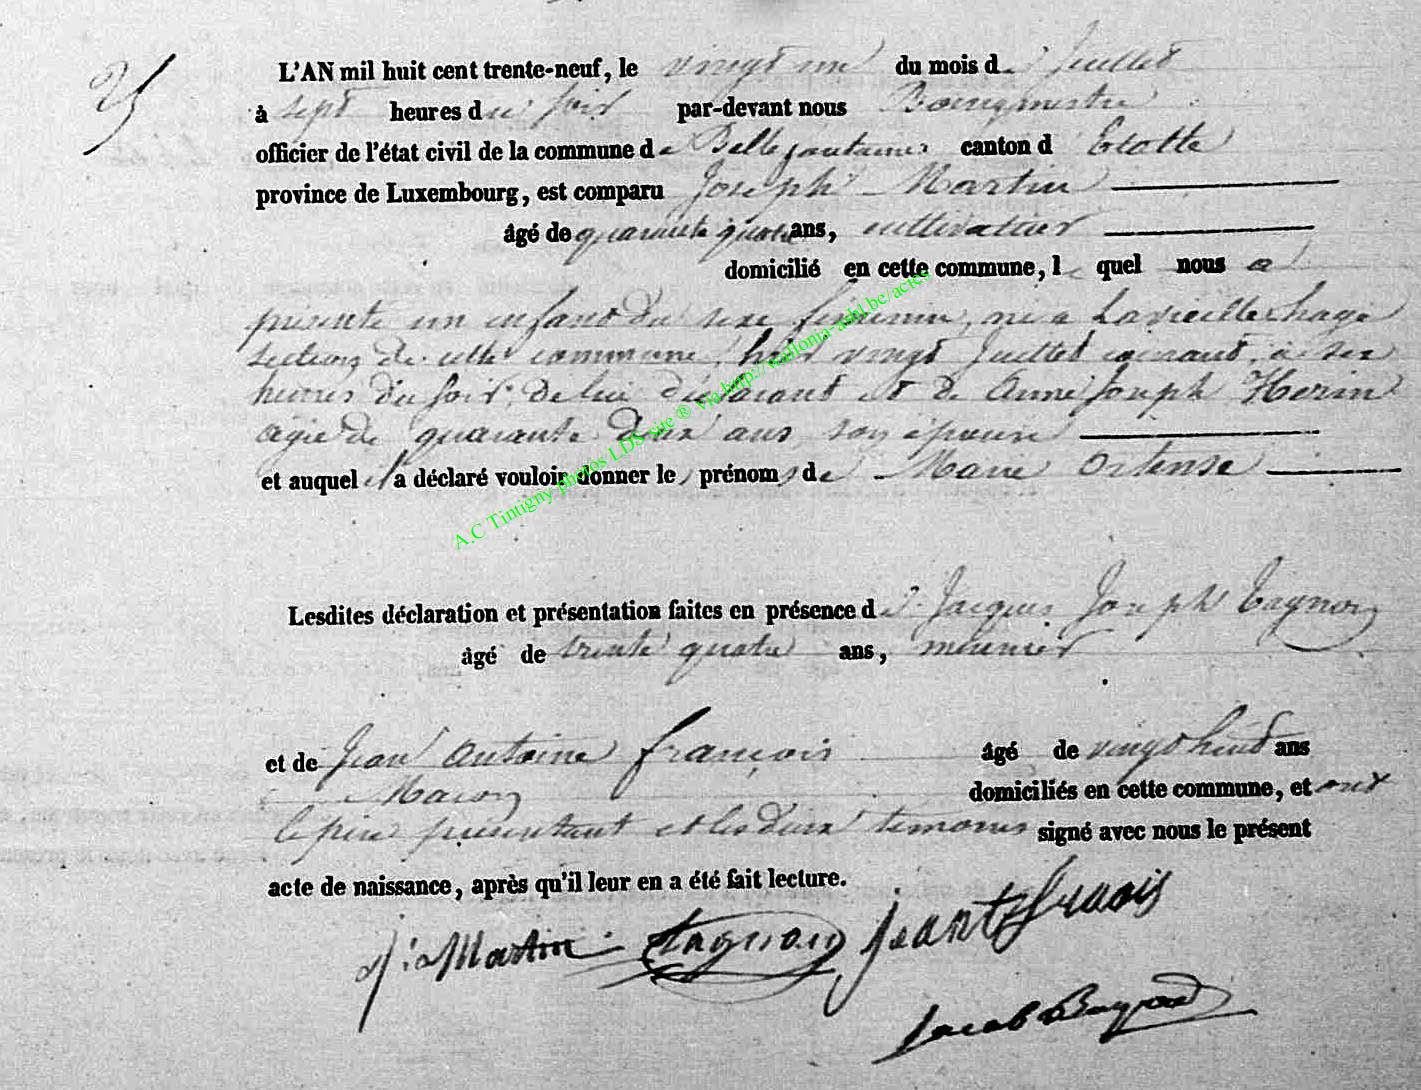 25
L'AN mil huit cent trente-neuf, le vingt un du mois de Juillet
à sept heures du soir par-devant nous Bourgmestre
officier de l'état civil de la commune de Bellefontaine canton d'Etalle
province de Luxembourg, est comparu Joseph Martin
âgé de quarante quatre ans, cultivateur
domicilié en cette commune, lequel nous a
présenté un enfant du sexe féminin, né a Lavieillehage
section de cette commune, hier vingt Juillet courant, à six
heures du soir, de lui déclarant et de Anne Joseph Herin
agée de quarante deux ans son épouse
et auquel il a déclaré vouloir donner les prénoms de Marie Ortense
A.C Tintigny photos LDS site ® via http://wallonia-asbl.be/actes
Lesdites déclaration et présentation faites en présence de Jacques Joseph Tagnon
âgé de trente quatre ans, meunier
et de Jean Antoine François âgé de vingt huit ans
Macon domiciliés en cette commune, et ont
le père présentant et les deux témoins signé avec nous le présent
acte de naissance, après qu'il leur en a été fait lecture.
J: j Martin Tagnon jeant francois
Jacob